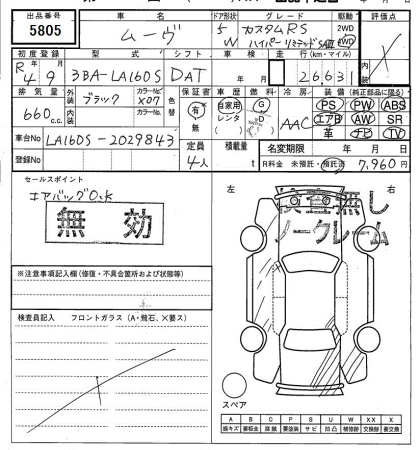 出品番号 車名 ドア形状 グレード 駆動 評価点
5805 ムーヴ 5 W カスタムRS ハイパーリミテッドSAⅢ 2WD 4WD X
初度登録 型式 シフト 車検 走行(km・マイル) 内装
R4年9月 3BA-LA160S DAT 年 月 26,631
排気量 外装 ブラック カラーNo. X07 色替 保証書 車歴 燃料 冷房 装備(純正部品に限る)
660c.c. 内装 カラーNo. 有・無 自家用 レンタ ( ) G D ( ) AAC PS PW ABS
エアB AW SR
革 ナビ TV
車台No LA160S-2029843 定員 積載量 名変期限 年 月 日
登録No 4人 t R料金 未預託・預託済 7,960円
セールスポイント
エアバッグO.K
無効
左 右
検査無し
ノークレーム
※注意事項記入欄(修復・不具合箇所および状態等)
検査員記入 フロントガラス(A・飛石、X要ス)
スペア
A B C P S U W X XX
線キズ 要鈑金 腐蝕 要塗装 サビ 凹凸 補修跡 要交換 交換